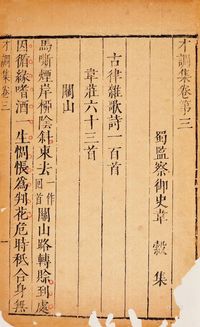 才調集卷第三
蜀監察御史韋縠集
古律雜歌詩一百首
韋莊六十三首
關山
馬嘶煙岸柳陰斜東去一作回首關山路轉賒到處
因循緣嗜酒一生惆悵爲判花危時祇合身無
才調集卷三